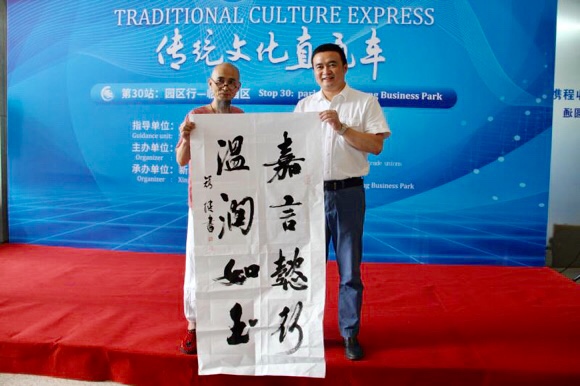 TRADITIONAL CULTURE EXPRESS
传统文化直通车
第30站：园区行— 区
Stop 30: par ng Business Park
指导单位：
Guidance unit:
主办单位：
Organizer
承办单位：新
Organizer : Xin
trade unions
ng Business Park
携程
嘉言懿行
温润如玉